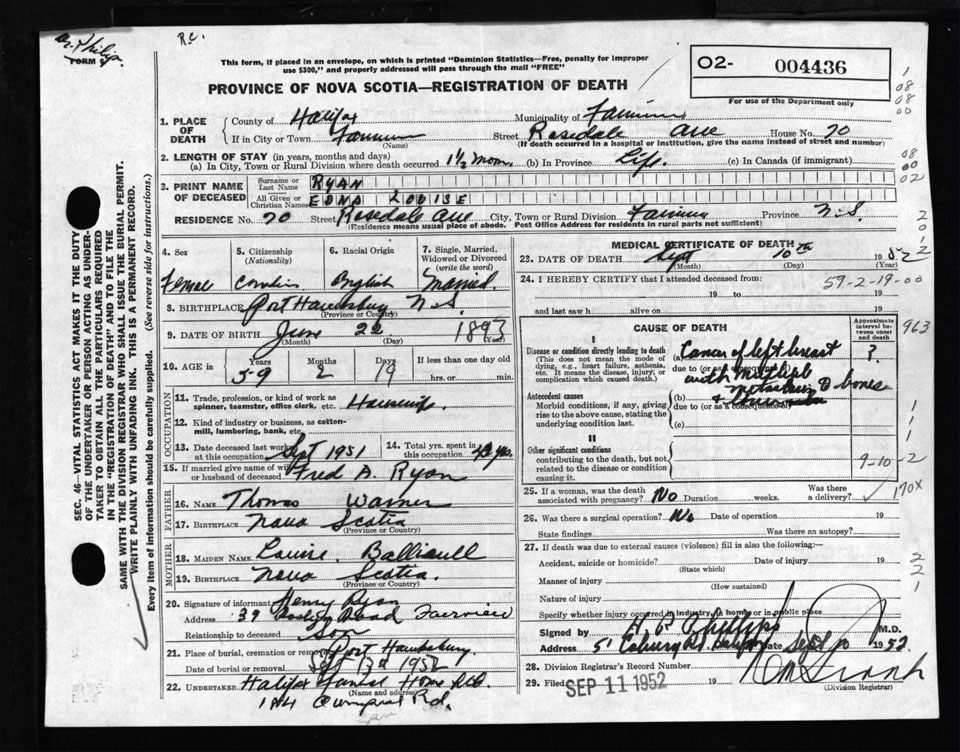 Dr. Philip
FORM
R.C.
This form, if placed in an envelope, on which is printed "Dominion Statistics—Free, penalty for improper
use $300," and properly addressed will pass through the mail "FREE"
PROVINCE OF NOVA SCOTIA—REGISTRATION OF DEATH
02- 004436
For use of the Department only
1. PLACE OF DEATH
County of Halifax Municipality of
If in City or Town Street Rosedale Ave House No. 70
(Name) (If death occurred in a hospital or institution, give the name instead of street and number)
2. LENGTH OF STAY (in years, months and days)
(a) In City, Town or Rural Division where death occurred 1 1/2 Mon. (b) In Province Life. (c) In Canada (if immigrant)
3. PRINT NAME OF DECEASED
Surname or Last Name RYAN
All Given or Christian Names EDNA LOUISE
RESIDENCE No. 70 Street Rosedale Ave City, Town or Rural Division Province N.S.
(Residence means usual place of abode. Post Office Address for residents in rural parts not sufficient)
4. Sex 5. Citizenship (Nationality) 6. Racial Origin 7. Single, Married, Widowed or Divorced (write the word)
Female English Married
8. BIRTHPLACE Port Hawkesbury N.S.
(Province or Country)
9. DATE OF BIRTH June 22 1893
(Month) (Day) (Year)
10. AGE in Years Months Days If less than one day old
59 2 19 hrs. or min.
OCCUPATION
11. Trade, profession, or kind of work as
spinner, teamster, office clerk, etc. Housewife
12. Kind of industry or business, as cotton-
mill, lumbering, bank, etc.
13. Date deceased last worked at this occupation Sept 1951 14. Total yrs. spent in this occupation yrs.
15. If married give name of wife or husband of deceased Fred A. Ryan
FATHER
16. Name Thomas Warner
17. Birthplace Nova Scotia
(Province or Country)
MOTHER
18. MAIDEN NAME Louise
19. BIRTHPLACE Nova Scotia.
(Province or Country)
20. Signature of informant Henry Ryan
Address 39 Road Fairview
Relationship to deceased Son
21. Place of burial, cremation or removal Port Hawkesbury.
Date of burial or removal Sept 13th 1952
22. UNDERTAKER Halifax Funeral Home
(Name and address)
Rd.
MEDICAL CERTIFICATE OF DEATH
23. DATE OF DEATH Sept 10th 1952
(Month) (Day) (Year)
24. I HEREBY CERTIFY that I attended deceased from: 59-2-19-00
19 to 19
and last saw h alive on 19
CAUSE OF DEATH
Approximate interval between onset and death
963
I
Disease or condition directly leading to death
(This does not mean the mode of dying, e.g., heart failure, asthenia, etc. It means the disease, injury, or complication which caused death.)
(a) Cancer of left breast ?
due to (or as a consequence of)
with multiple
Antecedent causes
Morbid conditions, if any, giving rise to the above cause, stating the underlying condition last.
(b) metastasis to bones
due to (or as a consequence of)
(c)
II
Other significant conditions
contributing to the death, but not related to the disease or condition causing it.
9-10-2
25. If a woman, was the death associated with pregnancy? No Duration weeks. Was there a delivery?
170X
26. Was there a surgical operation? No Date of operation 19
State findings Was there an autopsy?
27. If death was due to external causes (violence) fill in also the following:—
Accident, suicide or homicide? Date of injury 19
(State which)
Manner of injury
(How sustained)
Nature of injury
Specify whether injury occurred in industry, in home or in public place
Signed by Phillips M.D.
Address 51 Coburg Rd. Date Sept 10 1952
28. Division Registrar's Record Number
29. Filed SEP 11 1952 19
(Division Registrar)
SEC. 46—VITAL STATISTICS ACT MAKES IT THE DUTY
OF THE UNDERTAKER OR PERSON ACTING AS UNDER-
TAKER TO OBTAIN ALL THE PARTICULARS REQUIRED
IN THE "REGISTRATION OF DEATH" AND TO FILE THE
SAME WITH THE DIVISION REGISTRAR WHO SHALL ISSUE THE BURIAL PERMIT.
WRITE PLAINLY WITH UNFADING INK. THIS IS A PERMANENT RECORD.
Every item of information should be carefully supplied. (See reverse side for instructions.)